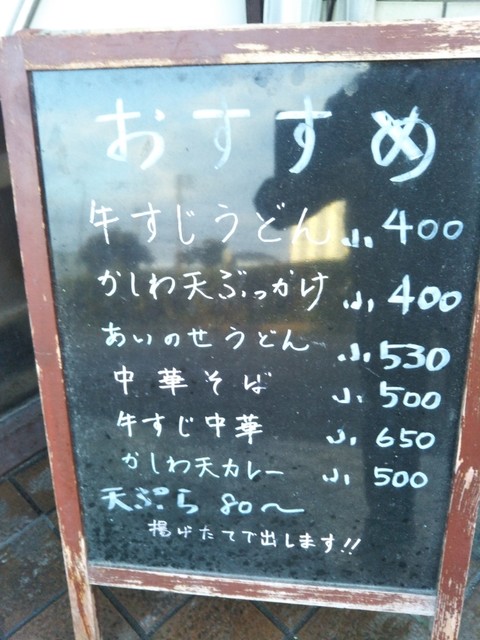 おすすめ
牛すじうどん 小 400
かしわ天ぶっかけ 小 400
あいのせうどん 小 530
中華そば 小 500
牛すじ中華 小 650
かしわ天カレー 小 500
天ぷら 80〜
揚げたてで出します!!